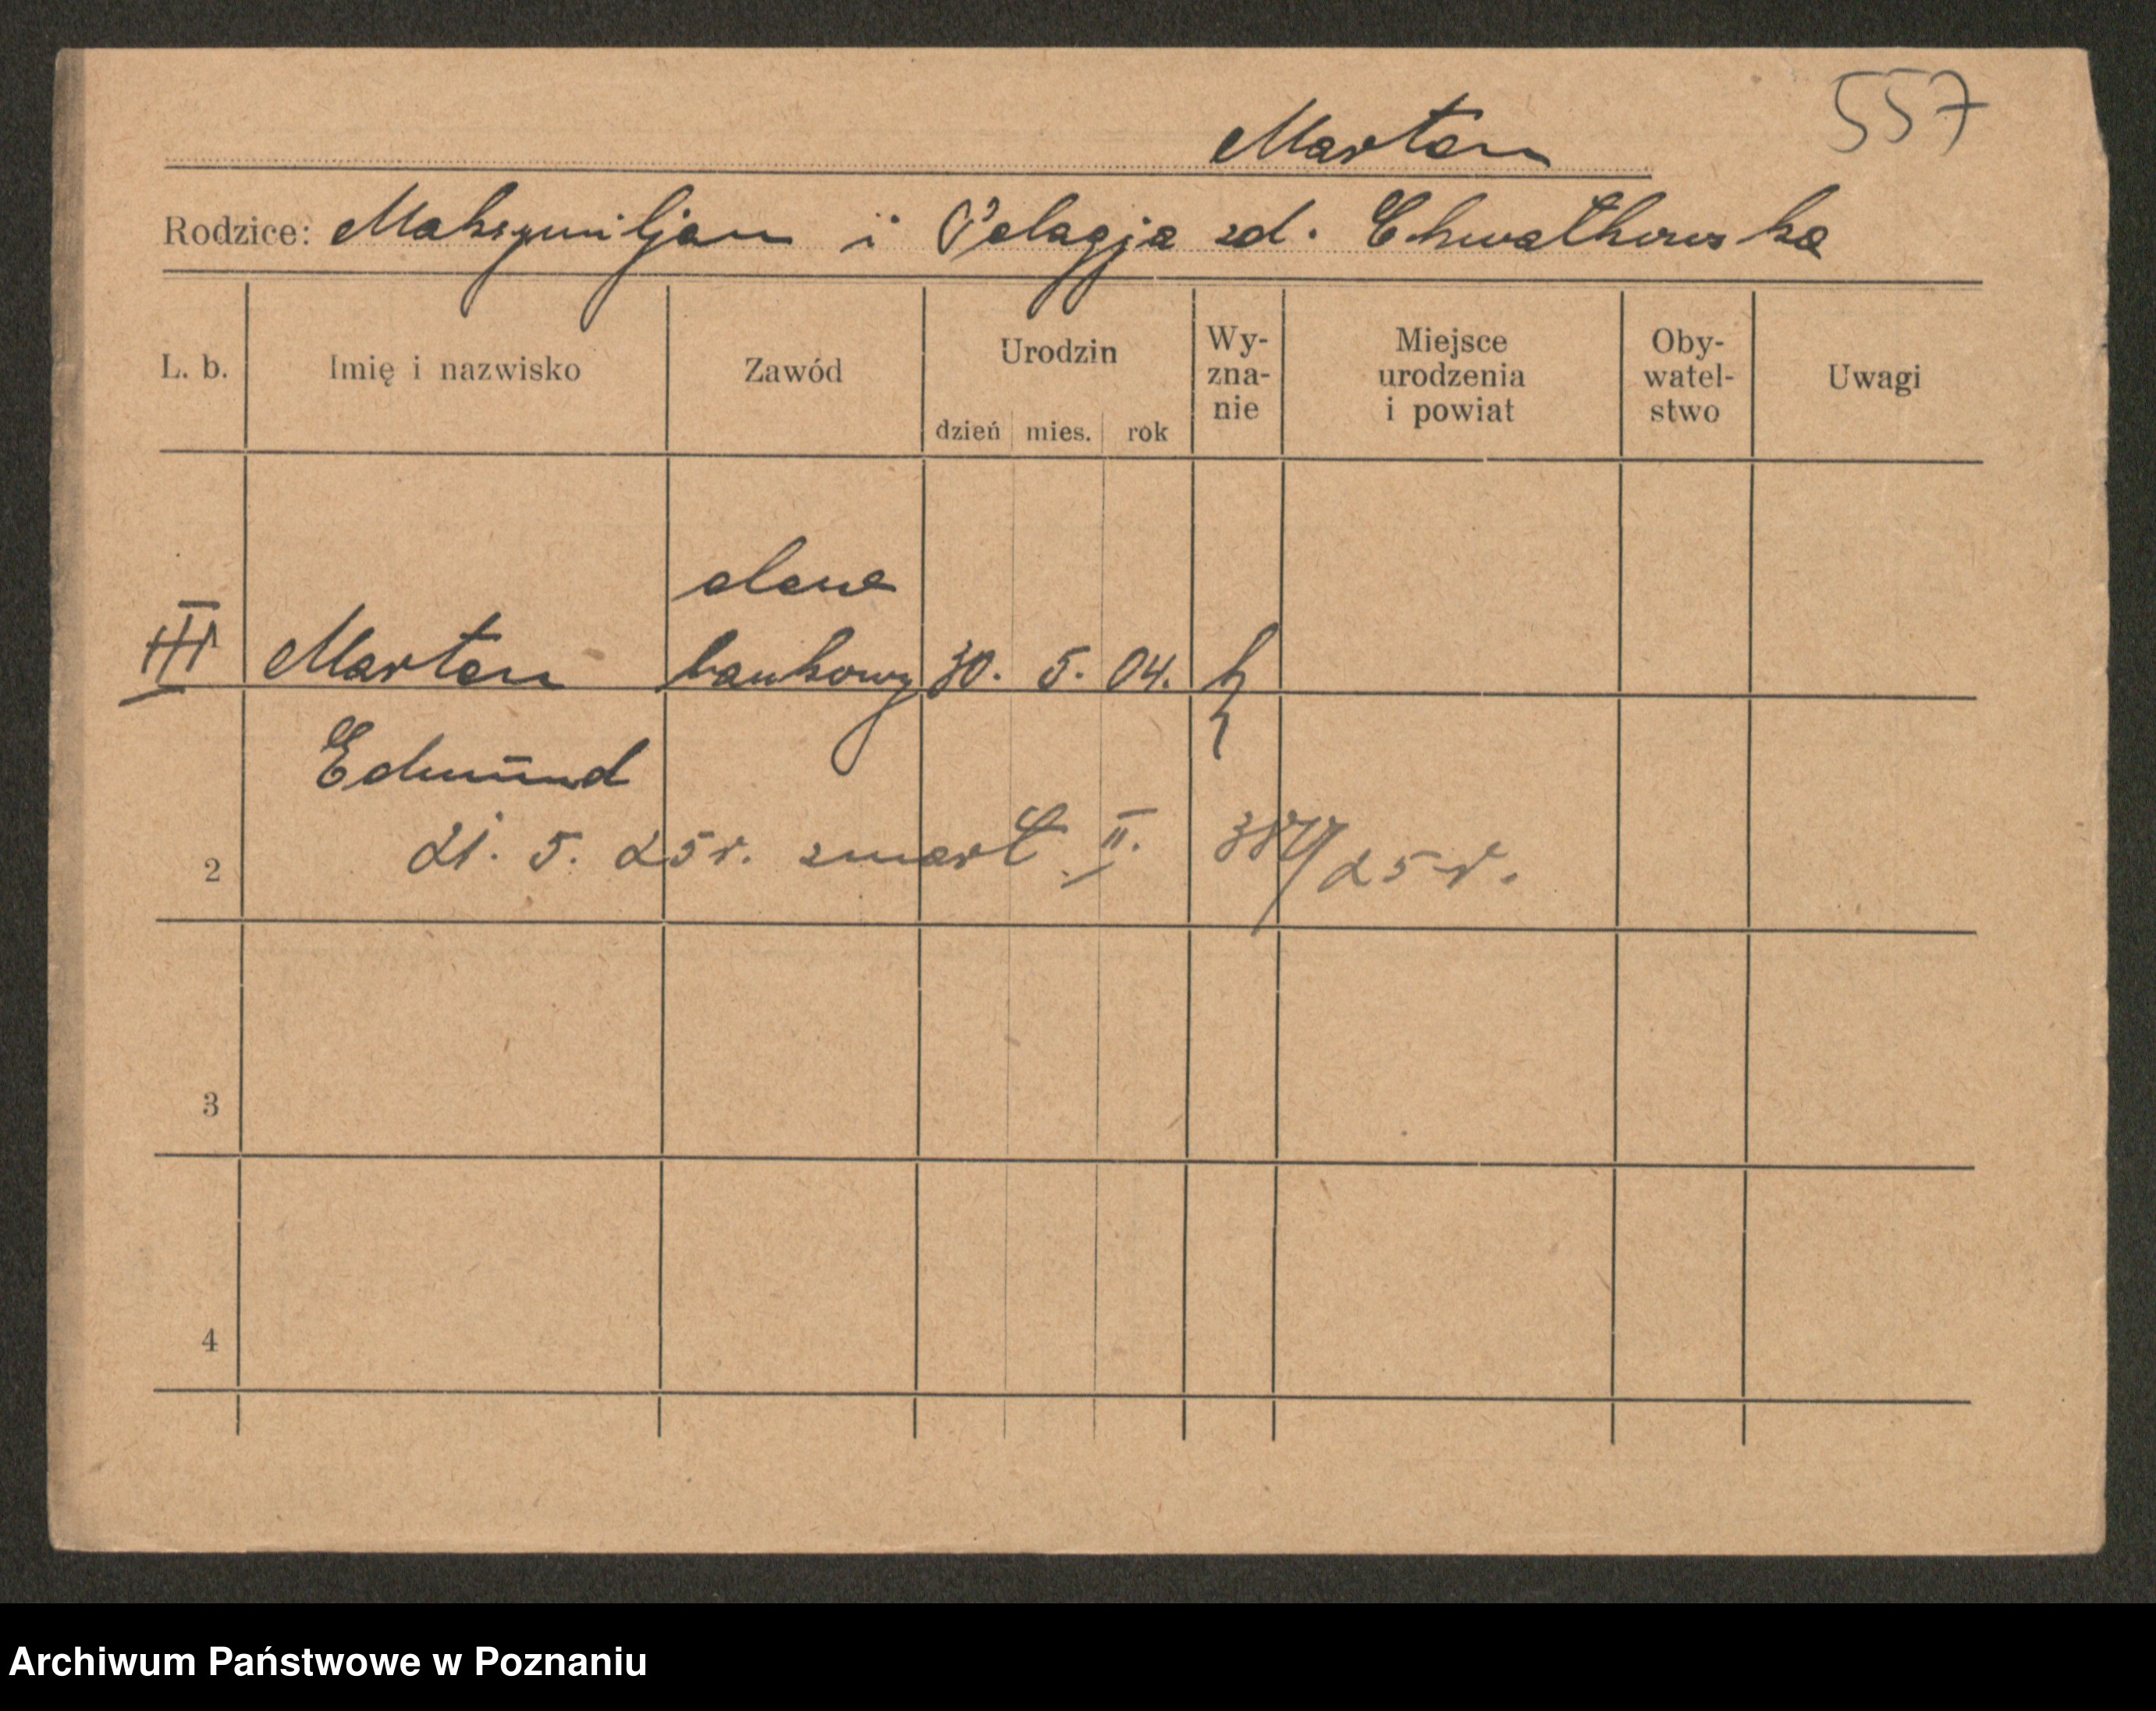 557
Marten
Rodzice: Maksymiljan i Pelagja zd. Chwatkowska
L. b. Imię i nazwisko Zawód Urodzin dzień mies. rok Wy-zna-nie Miejsce urodzenia i powiat Oby-watel-stwo Uwagi
elew
III Marten bankowy 30. 5. 04. k
Edmund
21. 5. 25 r. zmarł II. /25 r.
2
3
4
Archiwum Państwowe w Poznaniu